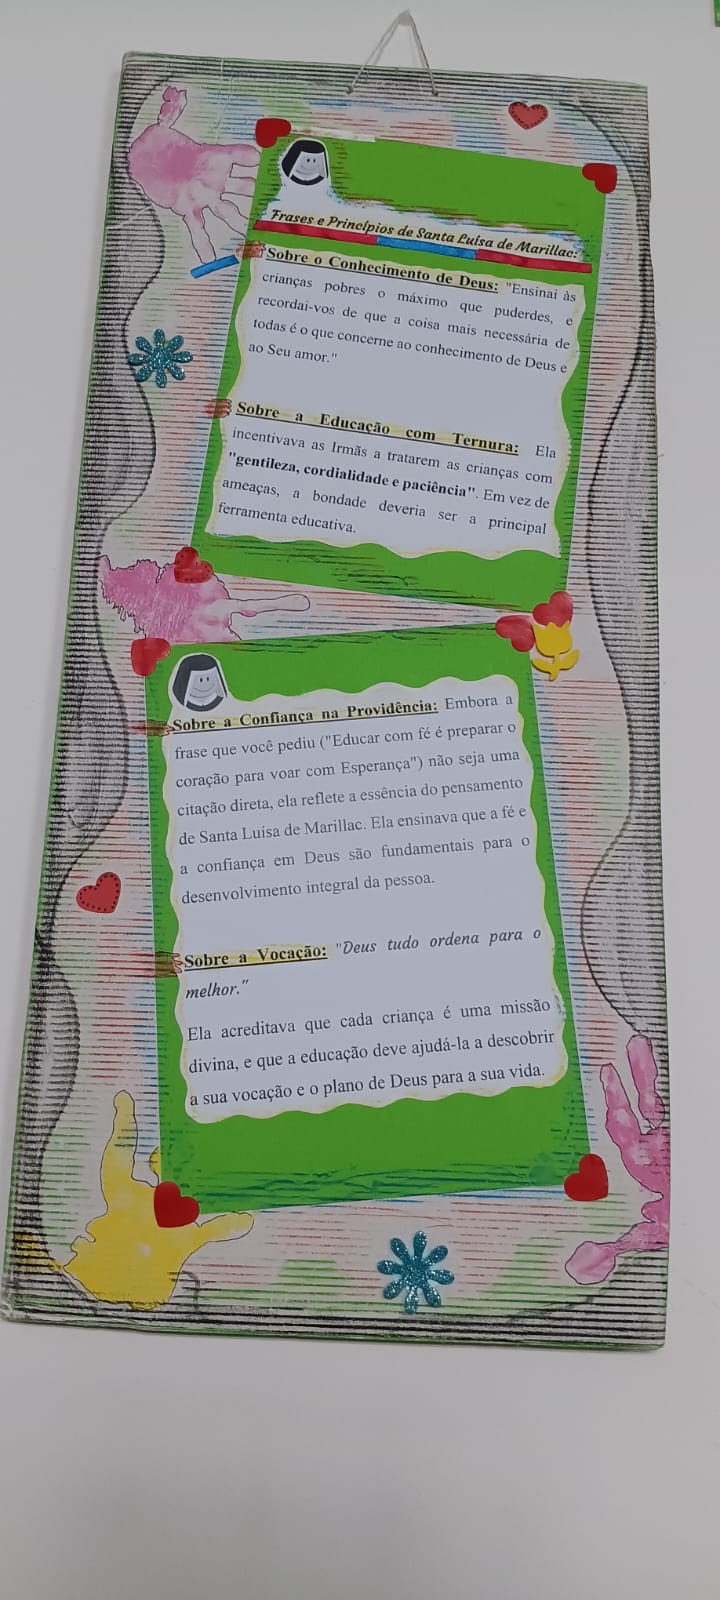 Frases e Princípios de Santa Luísa de Marillac:
Sobre o Conhecimento de Deus: "Ensinai às
crianças pobres o máximo que puderdes, e
recordai-vos de que a coisa mais necessária de
todas é o que concerne ao conhecimento de Deus e
ao Seu amor."
Sobre a Educação com Ternura: Ela
incentivava as Irmãs a tratarem as crianças com
"gentileza, cordialidade e paciência". Em vez de
ameaças, a bondade deveria ser a principal
ferramenta educativa.
Sobre a Confiança na Providência: Embora a
frase que você pediu ("Educar com fé é preparar o
coração para voar com Esperança") não seja uma
citação direta, ela reflete a essência do pensamento
de Santa Luísa de Marillac. Ela ensinava que a fé e
a confiança em Deus são fundamentais para o
desenvolvimento integral da pessoa.
Sobre a Vocação: "Deus tudo ordena para o
melhor."
Ela acreditava que cada criança é uma missão
divina, e que a educação deve ajudá-la a descobrir
a sua vocação e o plano de Deus para a sua vida.